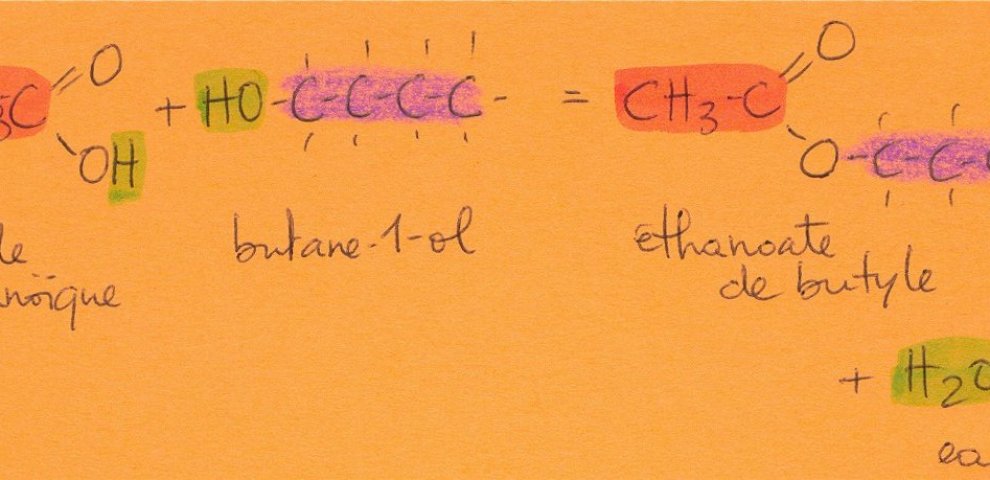 O
O
₃C + HO-C-C-C-C- = CH₃-C
OH
O-C-C-C
le butane-1-ol éthanoate
noïque de butyle
+ H₂O
ea